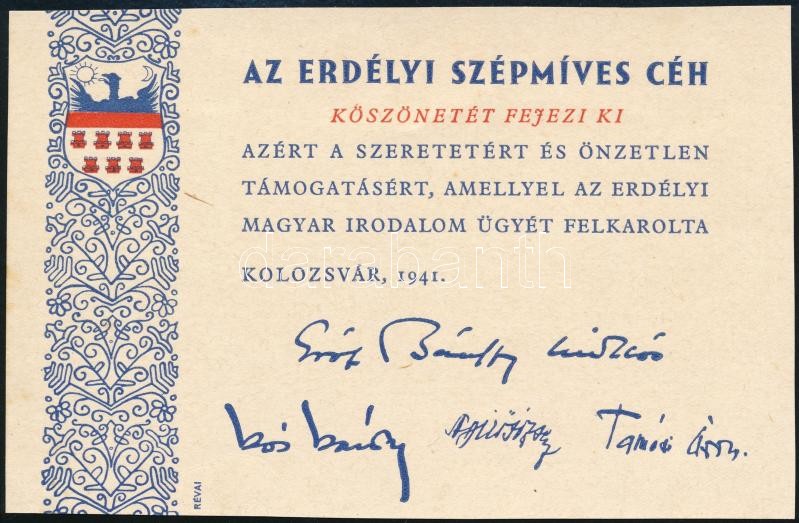 AZ ERDÉLYI SZÉPMÍVES CÉH
KÖSZÖNETÉT FEJEZI KI
AZÉRT A SZERETETÉRT ÉS ÖNZETLEN
TÁMOGATÁSÉRT, AMELLYEL AZ ERDÉLYI
MAGYAR IRODALOM ÜGYÉT FELKAROLTA
darabanth
KOLOZSVÁR, 1941.
Gróf Bánffy Miklós
Kós Károly Tamási Áron.
RÉVAI